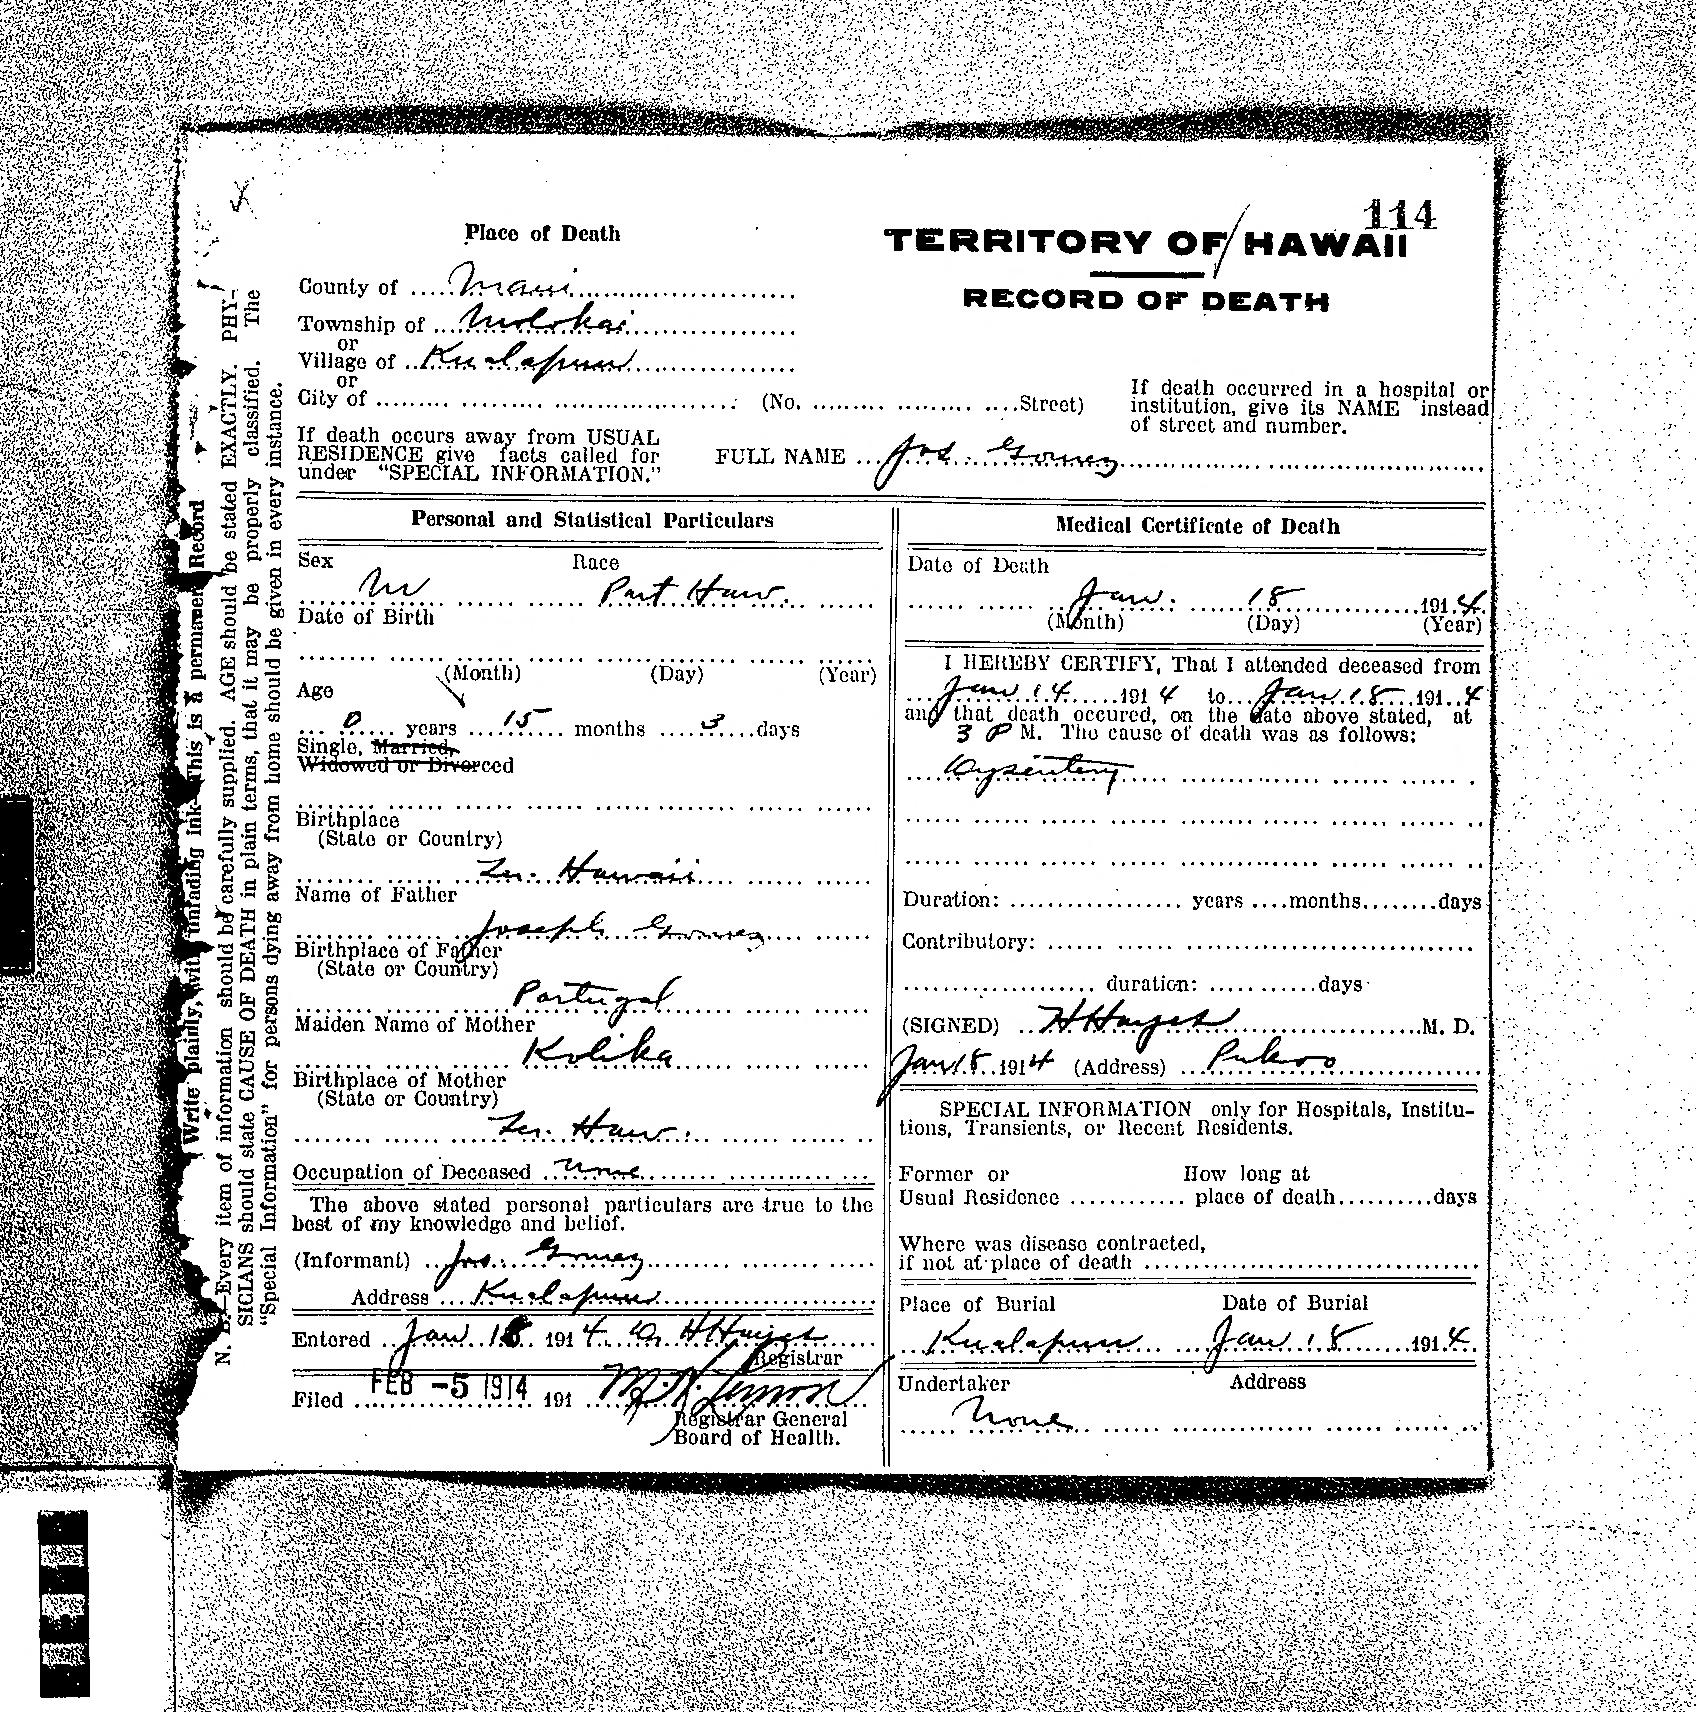 114
TERRITORY OF HAWAII
RECORD OF DEATH
Place of Death
County of Maui
Township of Molokai
or
Village of Kualapuu
or
City of (No. Street)
If death occurred in a hospital or
institution, give its NAME instead
of street and number.
If death occurs away from USUAL
RESIDENCE give facts called for
under "SPECIAL INFORMATION."
FULL NAME Jos. Gomez
Personal and Statistical Particulars
Sex Race
M Part Haw.
Date of Birth
(Month) (Day) (Year)
Age
0 years 15 months 3 days
Single, Married,
Widowed or Divorced
Birthplace
(State or Country)
Ter. Hawaii
Name of Father
Joseph Gomez
Birthplace of Father
(State or Country)
Portugal
Maiden Name of Mother
Kolika
Birthplace of Mother
(State or Country)
Ter. Haw.
Occupation of Deceased none
The above stated personal particulars are true to the
best of my knowledge and belief.
(Informant) Jos. Gomez
Address Kualapuu
Entered Jan 18 1914 H Hayes
Registrar
Filed FEB -5 1914 191 Lemon
Registrar General
Board of Health.
Medical Certificate of Death
Date of Death
Jan. 18 1914
(Month) (Day) (Year)
I HEREBY CERTIFY, That I attended deceased from
Jan 14 1914 to Jan 18 1914
and that death occured, on the date above stated, at
3 P M. The cause of death was as follows:
Dysentery
Duration: years months days
Contributory:
duration: days
(SIGNED) H Hayes M. D.
Jan 18 1914 (Address) Pukoo
SPECIAL INFORMATION only for Hospitals, Institu-
tions, Transients, or Recent Residents.
Former or How long at
Usual Residence place of death days
Where was disease contracted,
if not at place of death
Place of Burial Date of Burial
Kualapuu Jan 18 1914
Undertaker Address
None
Write plainly, with unfading ink—This is a permanent Record
N. B.—Every item of information should be carefully supplied. AGE should be stated EXACTLY. PHY-
SICIANS should state CAUSE OF DEATH in plain terms, that it may be properly classified. The
"Special Information" for persons dying away from home should be given in every instance.